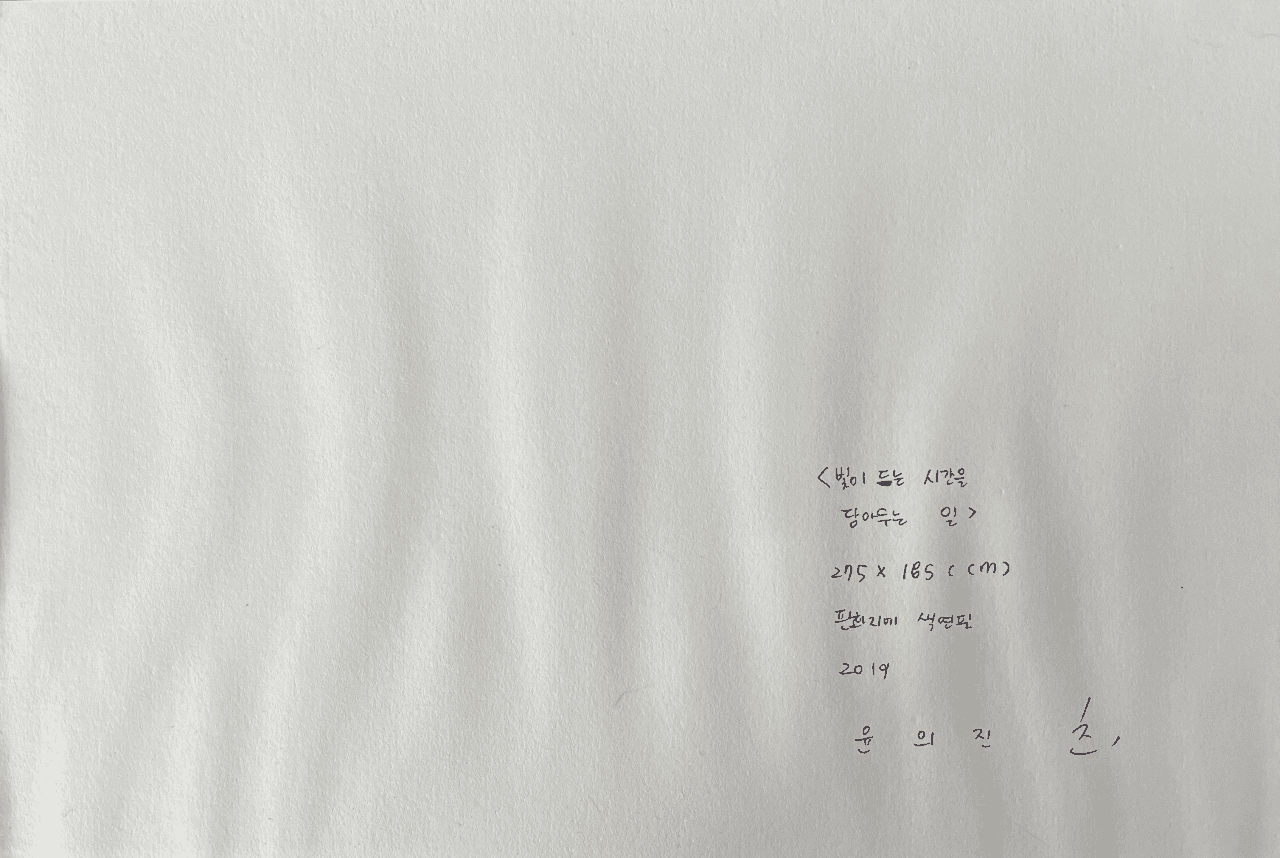 <빛이 드는 시간을
담아두는 일>
275 x 185 (cm)
판화지에 색연필
2019
윤 의 진